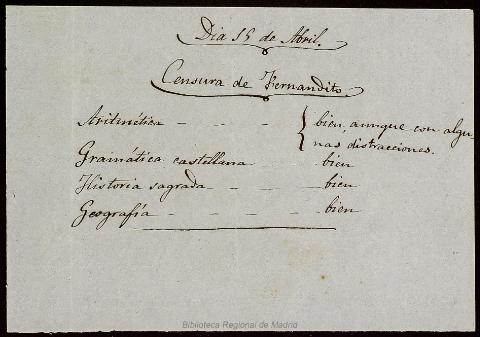 Dia 15 de Abril.
Censura de Fernandito.
Aritmética - - - { bien, aunque con algu
nas distracciones.
Gramática castellana - - bien
Historia sagrada - - - bien
Geografía - - - - bien
Biblioteca Regional de Madrid